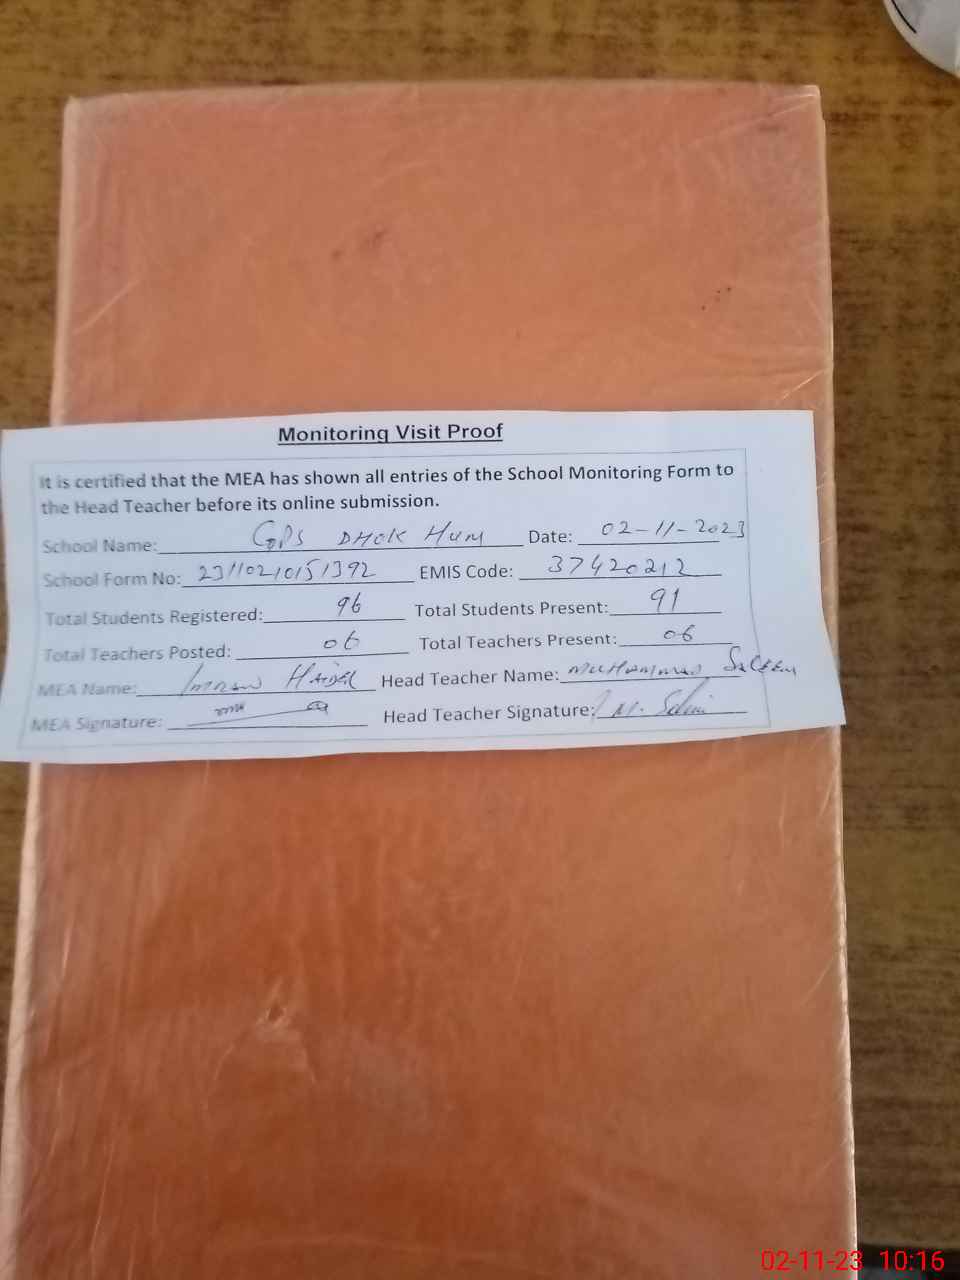 Monitoring Visit Proof
It is certified that the MEA has shown all entries of the School Monitoring Form to
the Head Teacher before its online submission.
School Name: GPS DHOK Hum Date: 02-11-2023
School Form No: 23110210151392 EMIS Code: 37420212
Total Students Registered: 96 Total Students Present: 91
Total Teachers Posted: 06 Total Teachers Present: 06
MEA Name: Imran Haider Head Teacher Name: Muhammad Saleem
MEA Signature: Head Teacher Signature: M. Salim
02-11-23 10:16